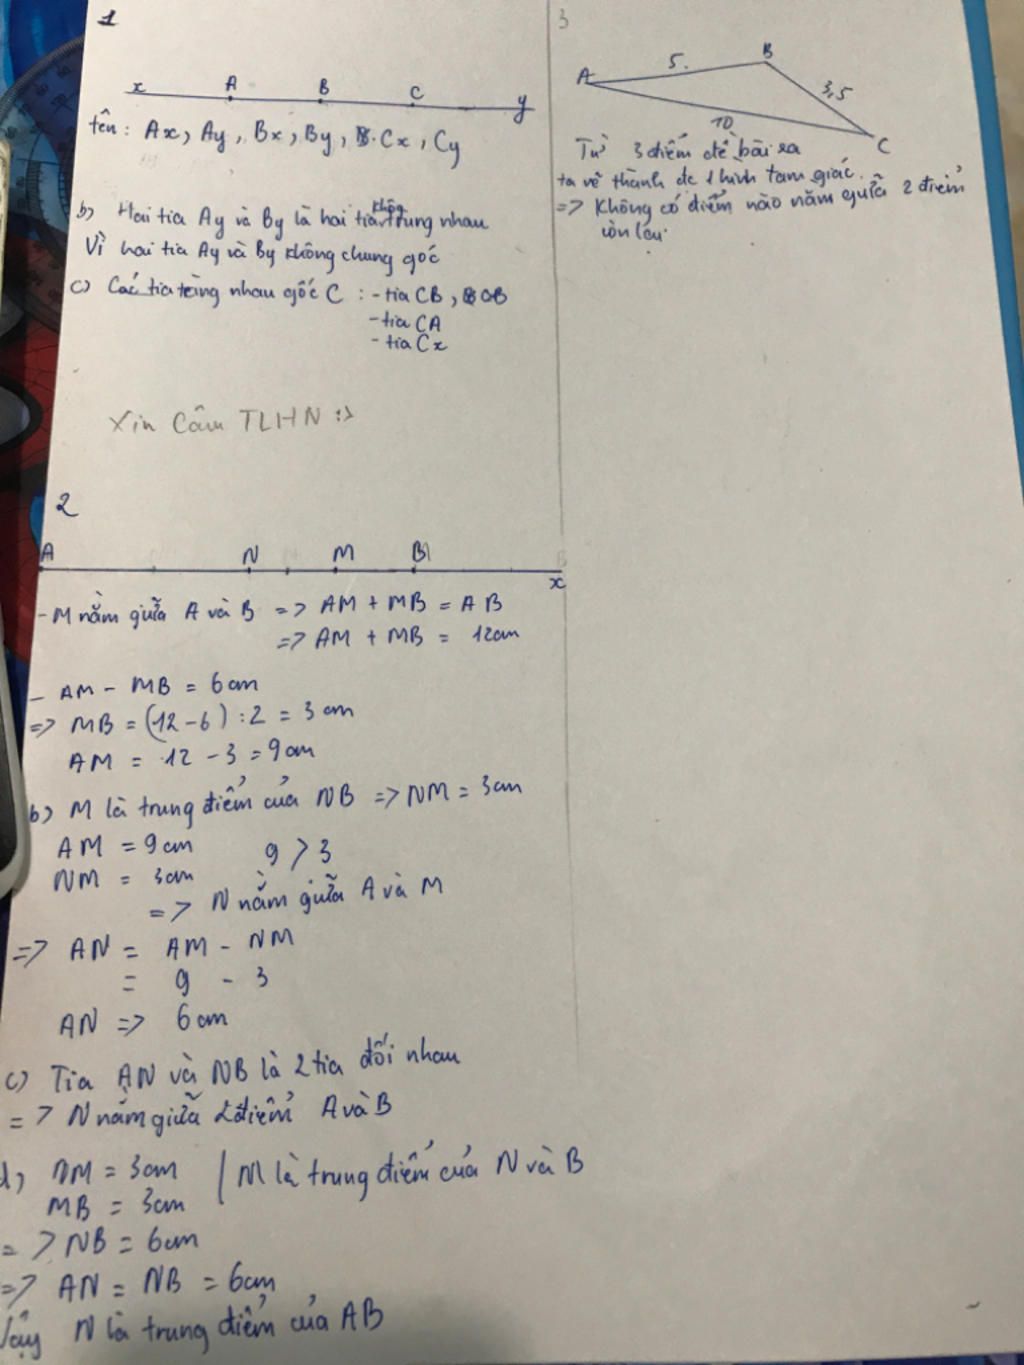 1
x A B C y
tên: Ax, Ay, Bx, By, Cx, Cy
b) Hai tia Ay và By là hai tia không trùng nhau
Vì hai tia Ay và By không chung gốc
c) Các tia trùng nhau gốc C : - tia CB,
- tia CA
- tia Cx
Xin Cảm TLHN :>
2
A N M B x
- M nằm giữa A và B => AM + MB = AB
=> AM + MB = 12cm
- AM - MB = 6cm
=> MB = (12-6) : 2 = 3cm
AM = 12 - 3 = 9cm
b) M là trung điểm của NB => NM = 3cm
AM = 9cm 9 > 3
NM = 3cm
=> N nằm giữa A và M
=> AN = AM - NM
= 9 - 3
AN => 6cm
c) Tia AN và NB là 2 tia đối nhau
=> N nằm giữa 2 điểm A và B
d) NM = 3cm | M là trung điểm của N và B
MB = 3cm
=> NB = 6cm
=> AN = NB = 6cm
Vậy N là trung điểm của AB
3
A 5. B 3,5
10 C
Từ 3 điểm đề bài ra
ta vẽ thành đc 1 hình tam giác.
=> Không có điểm nào nằm giữa 2 điểm
còn lại.